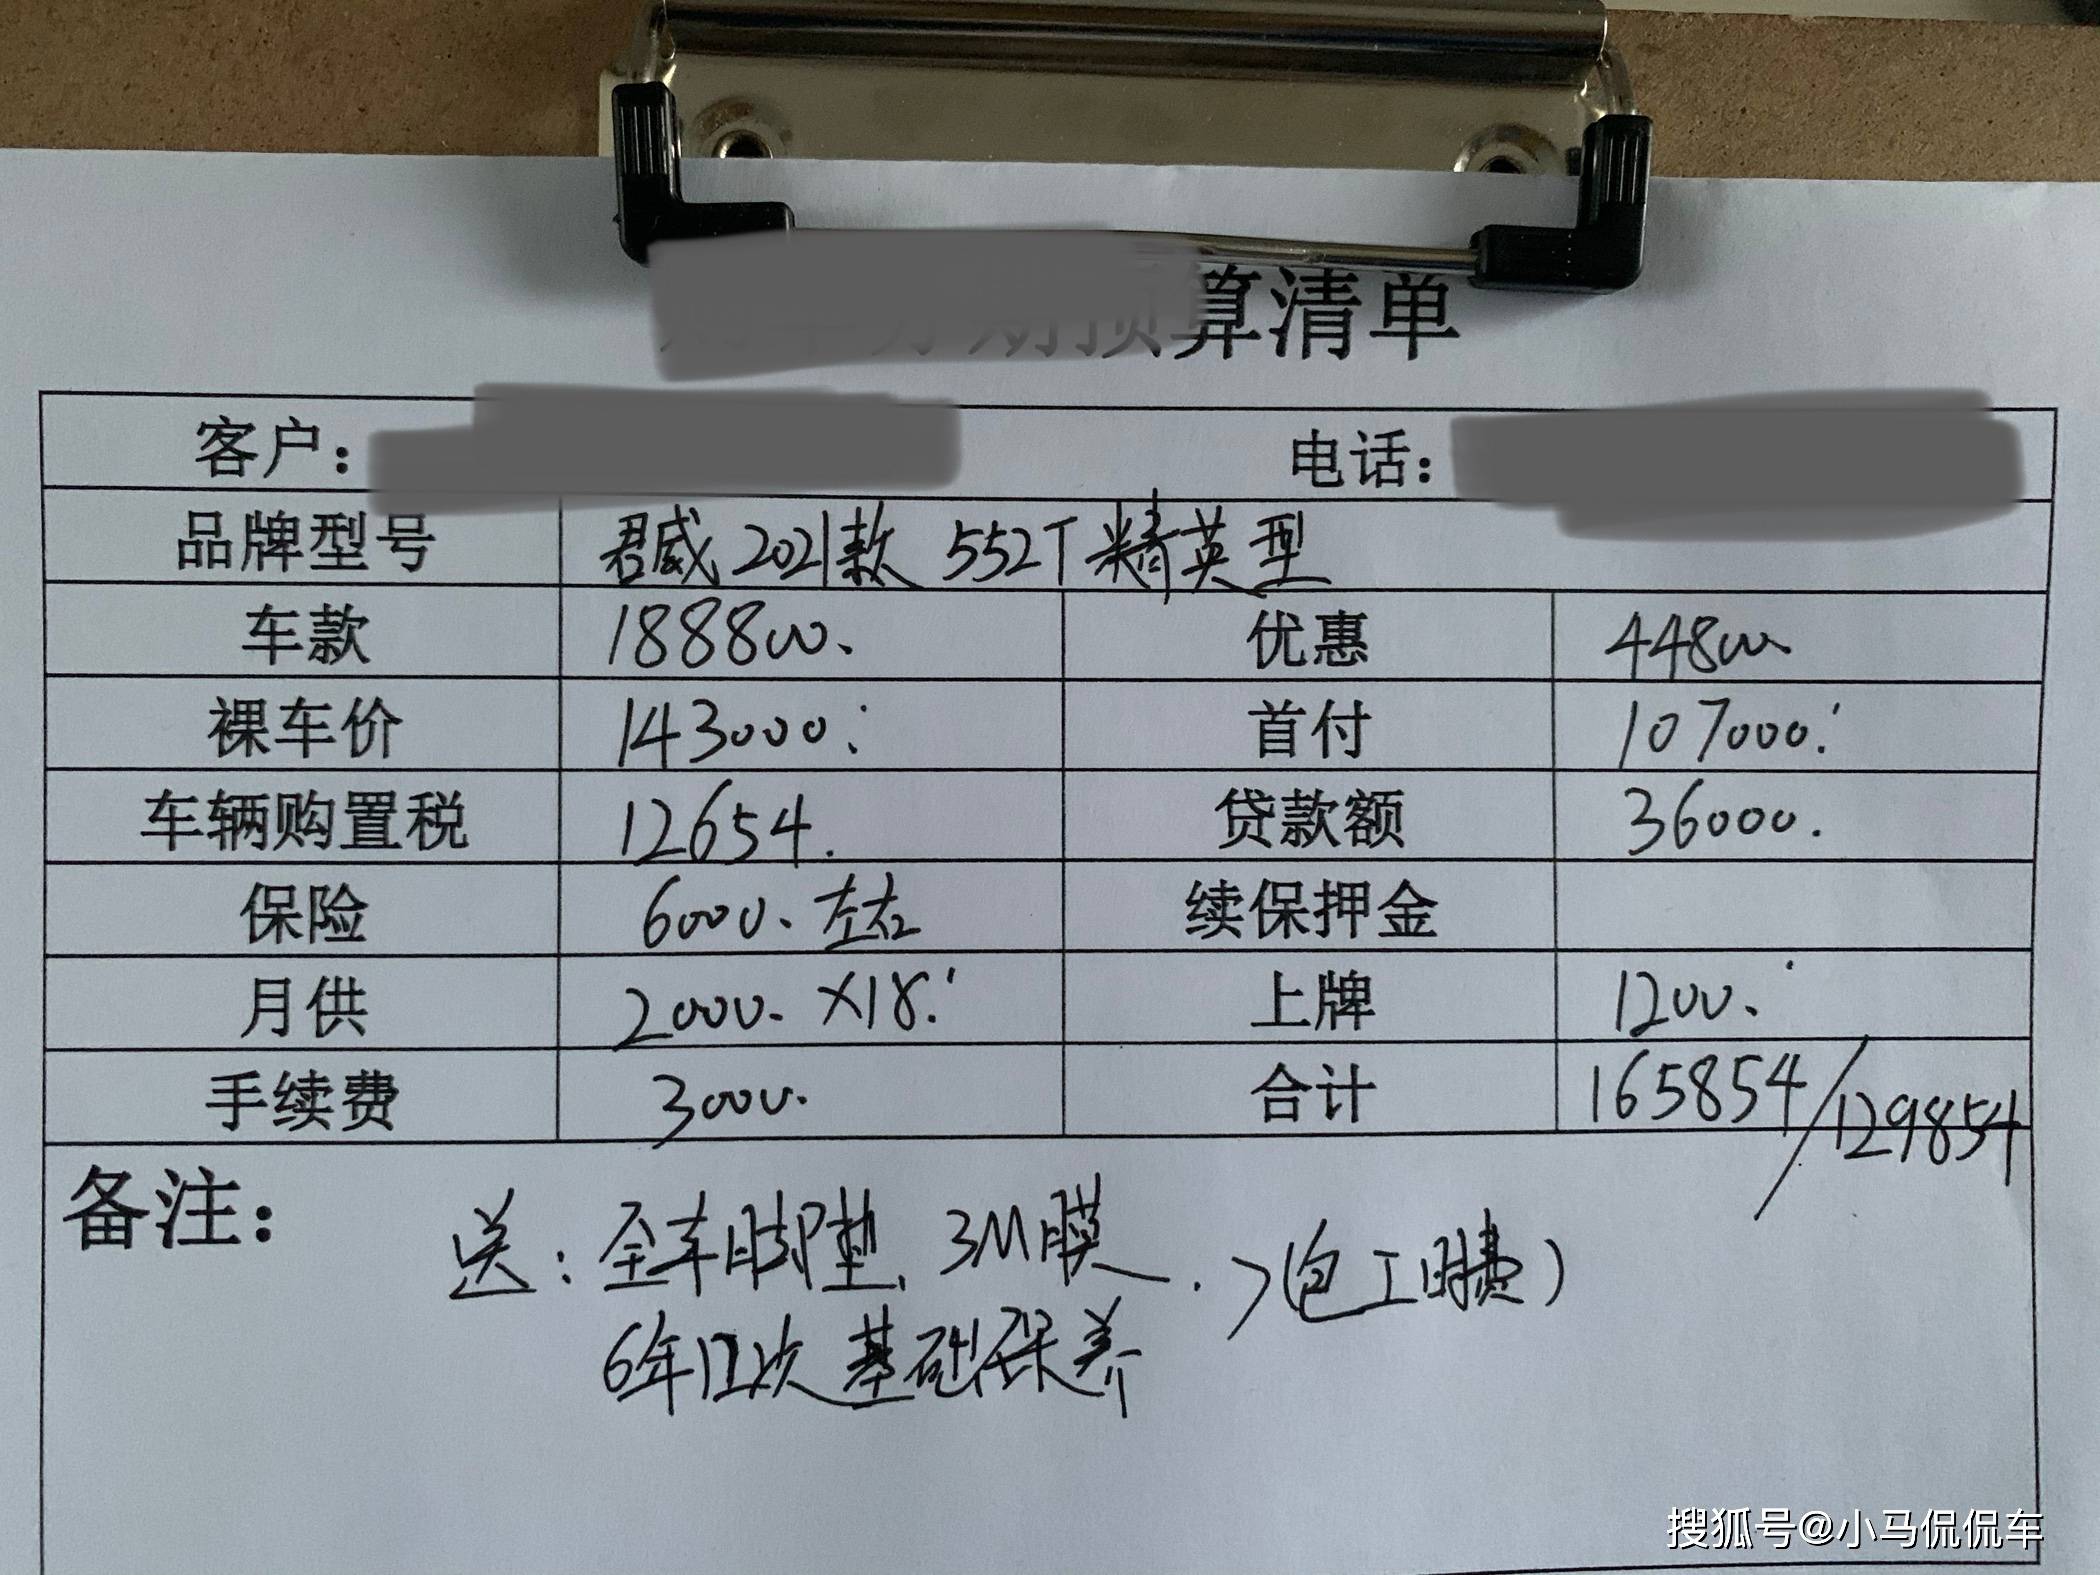 算清单
客户： 电话：
品牌型号 君威 2021款 552T 精英型
车款 188800、 优惠 44800
裸车价 143000. 首付 107000.
车辆购置税 12654. 贷款额 36000.
保险 6000、左右 续保押金
月供 2000、×18. 上牌 1200、
手续费 3000. 合计 165854/129854
备注：
送：全车脚垫、3M膜、>(包工时费)
6年12次基础保养
搜狐号@小马侃侃车